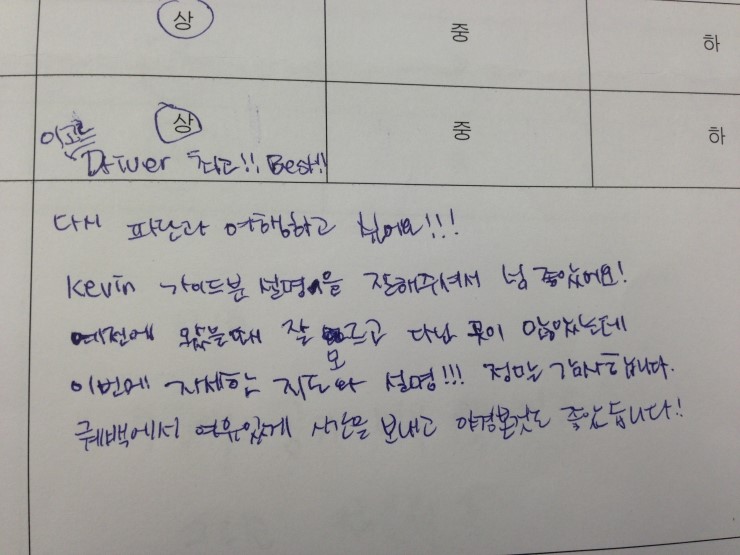 상 중 하
상 중 하
Driver 최고!! Best!!
다시 파란과 여행하고 싶어요!!!
Kevin 가이드분 설명을 잘해주셔서 넘 좋았어요!
예전에 왔을때 잘 모르고 다닌 곳이 많았는데
이번에 자세한 지도와 설명!!! 정말 감사합니다.
퀘백에서 여유있게 시간을 보내고 야경본것도 좋았습니다!